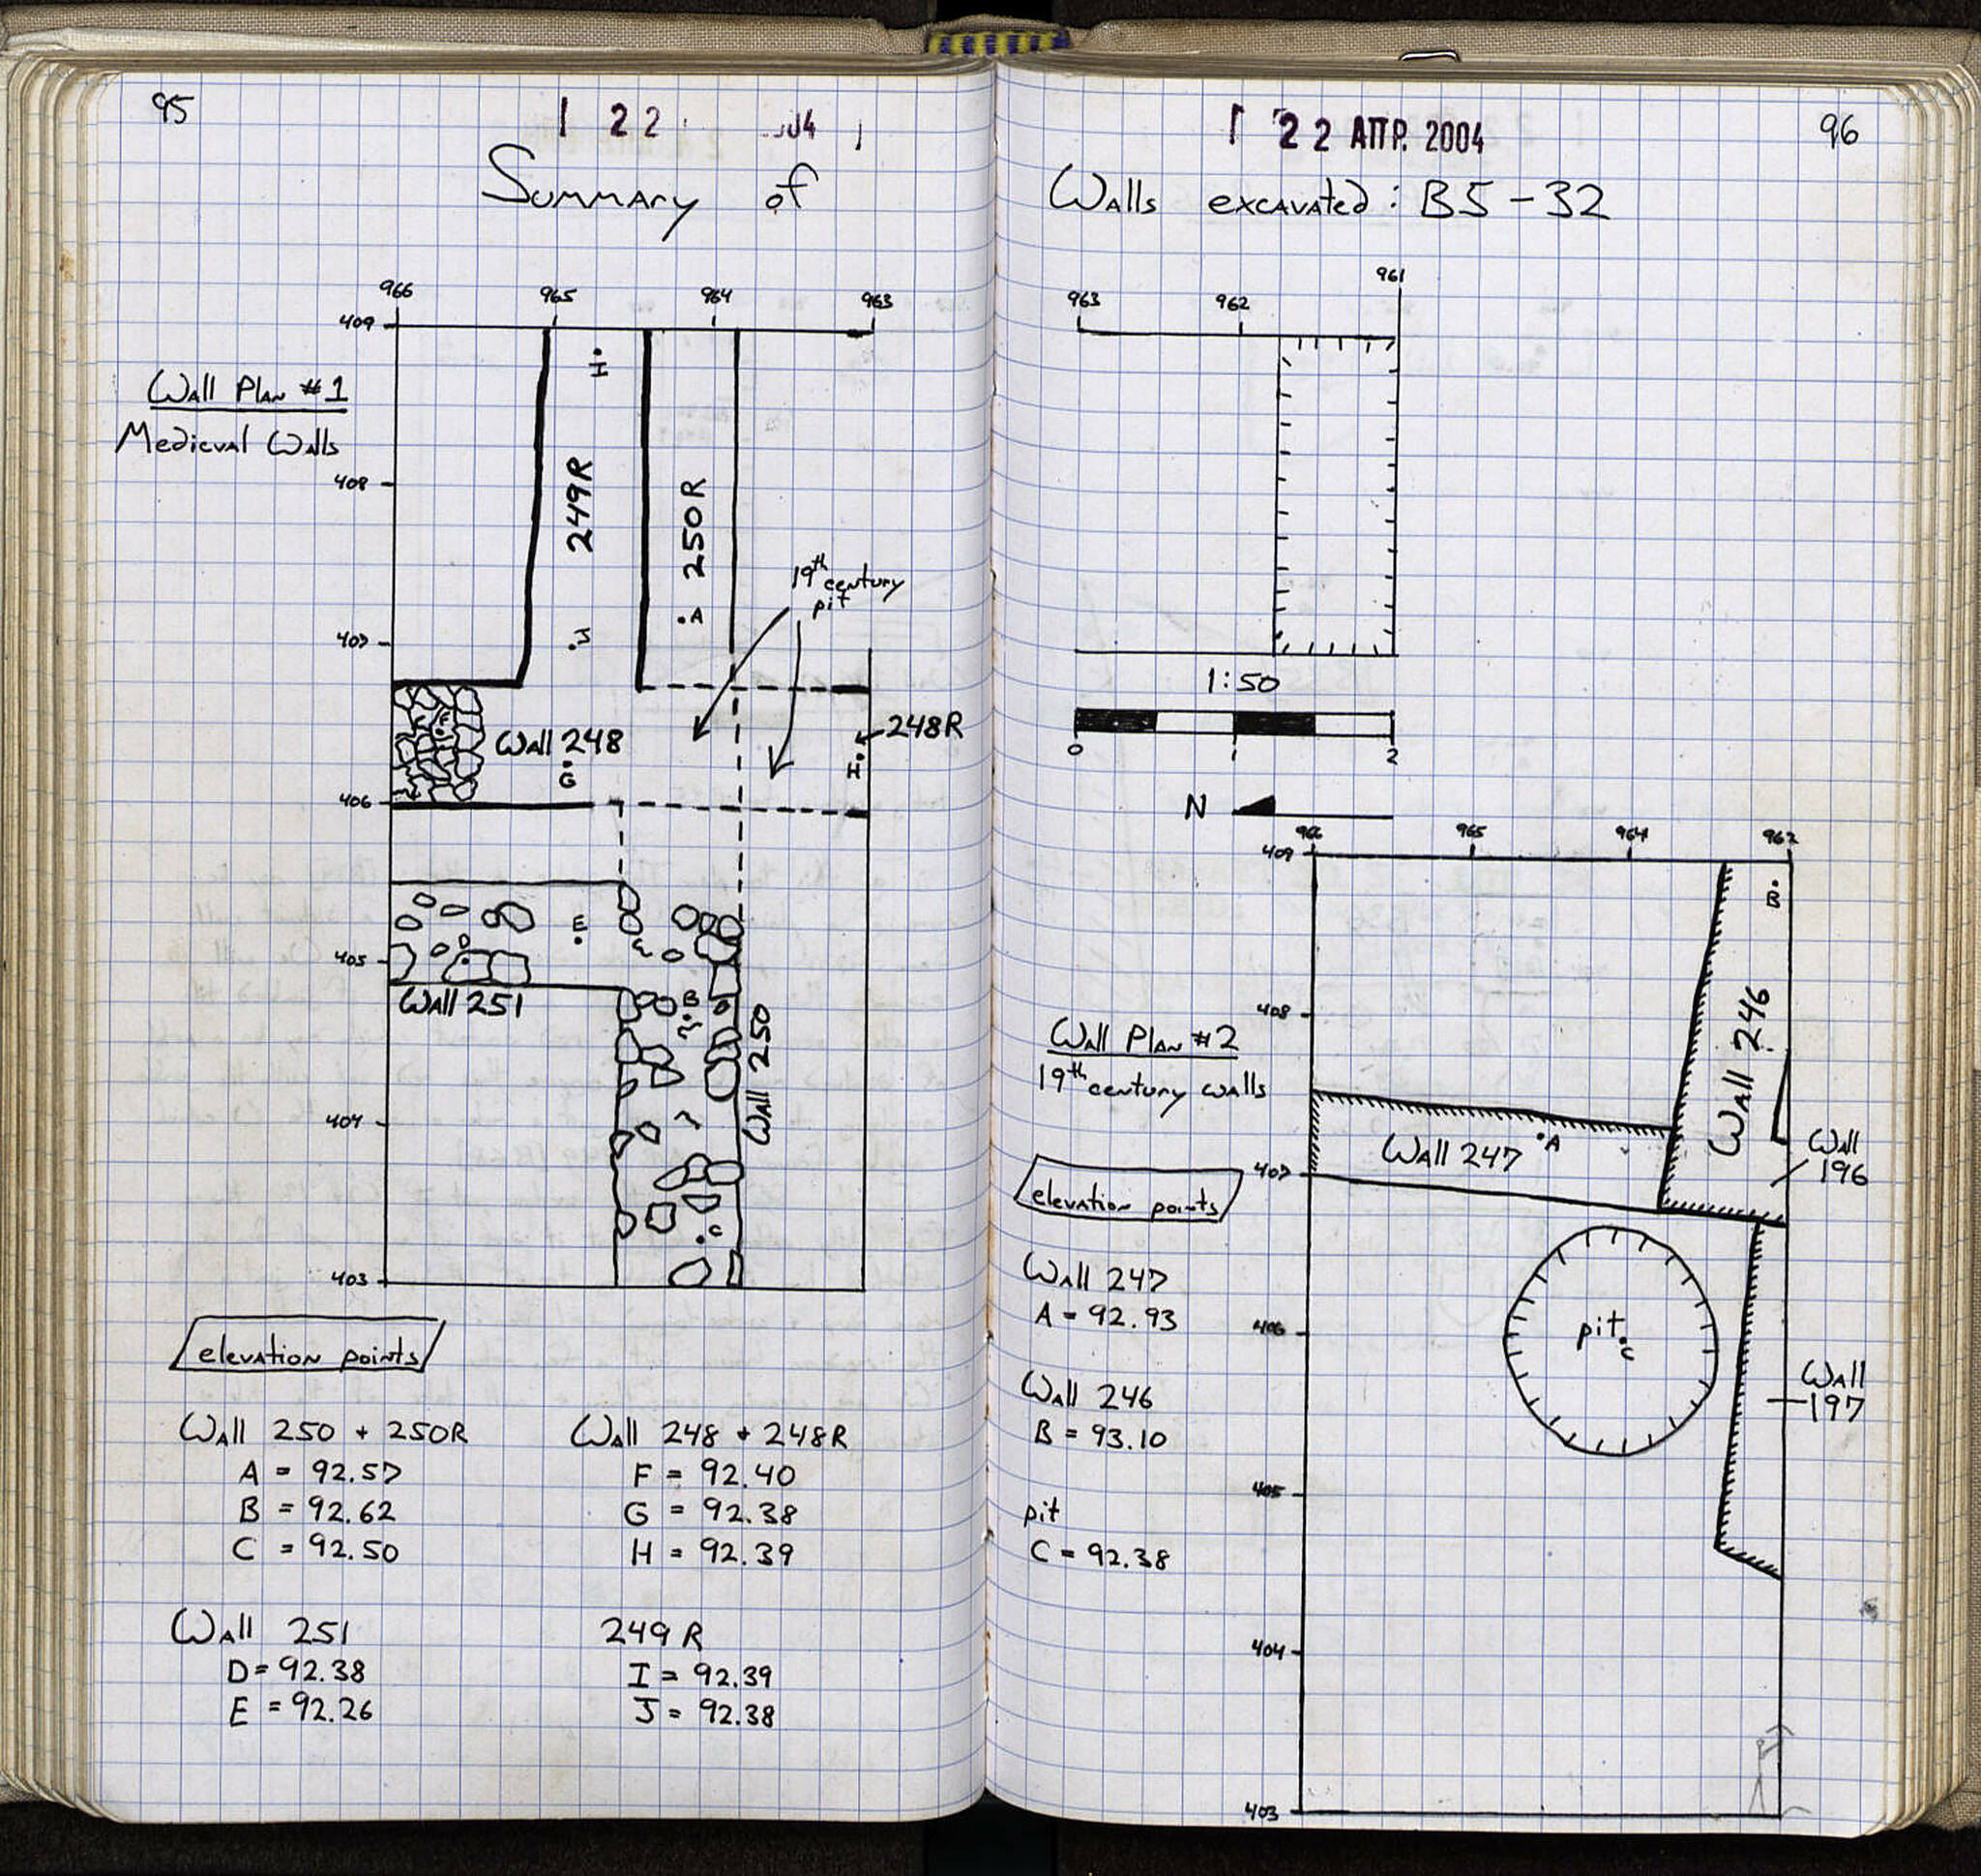 95
22
Summary of
966 965 964 963
409
Wall Plan #1
Medieval Walls
I
408
249R
250R
19th century
pit
A
407
J
F
Wall 248
248R
G
H
406
E
D
405
Wall 251
B
Wall 250
404
C
403
elevation points
Wall 250 + 250R
A = 92.57
B = 92.62
C = 92.50
Wall 248 + 248R
F = 92.40
G = 92.38
H = 92.39
Wall 251
D = 92.38
E = 92.26
249R
I = 92.39
J = 92.38
22 ΑΠΡ. 2004
96
Walls excavated: B5-32
963 962 961
1:50
0 1 2
N
966 965 964 963
409
B
408
Wall 246
Wall Plan #2
19th century walls
Wall 247
A
Wall
196
407
elevation points
Wall 247
A = 92.93
406
pit
C
Wall 246
B = 93.10
Wall
197
405
pit
C = 92.38
404
403